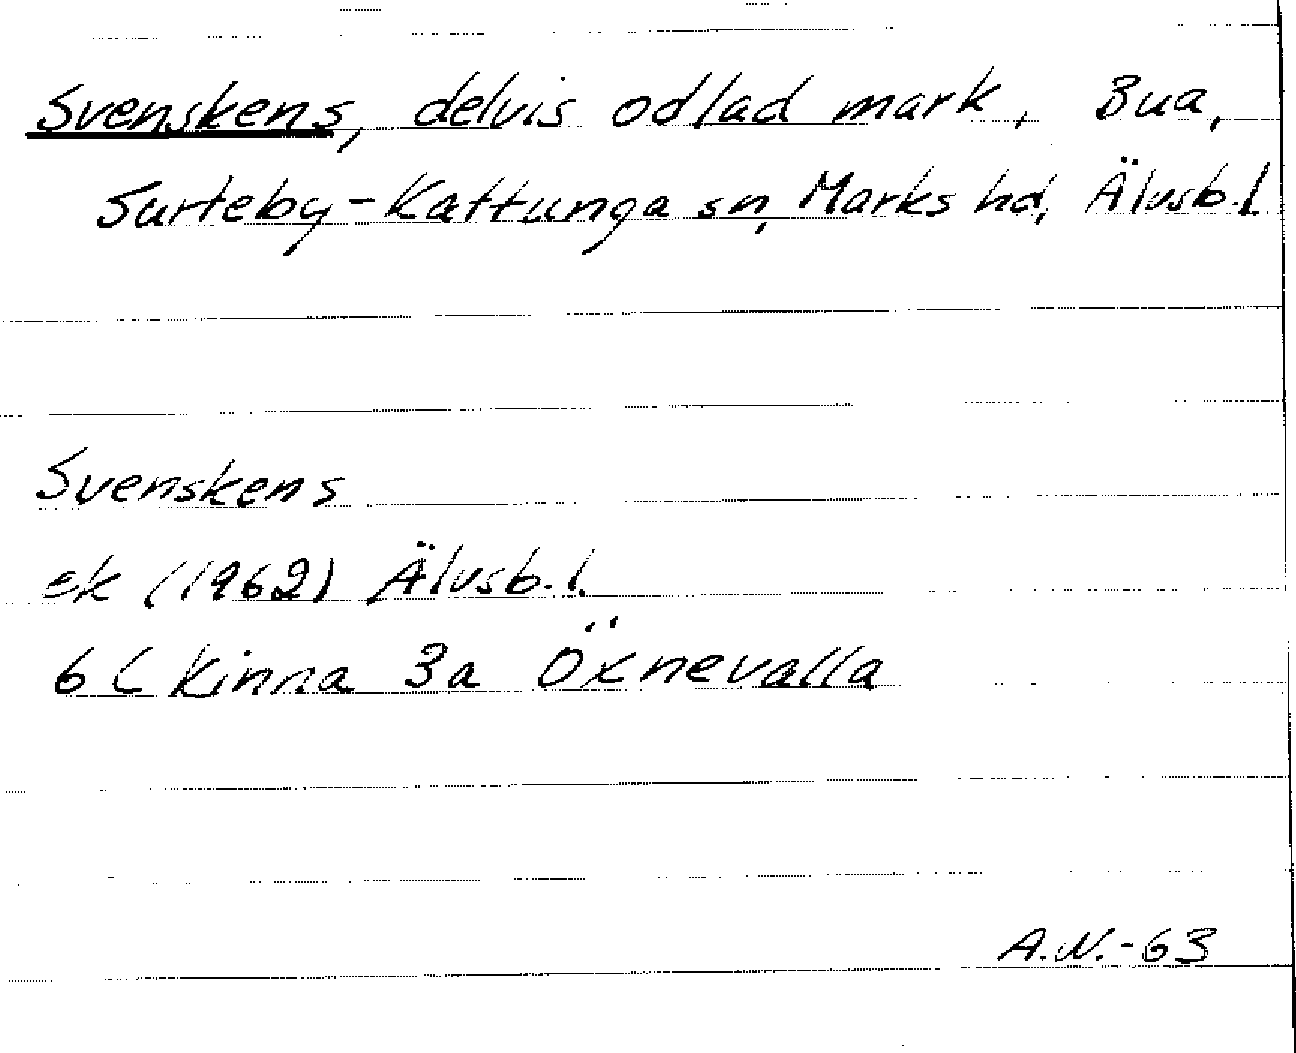 Svenskens, delvis odlad mark, Bua,
Surteby-Kattunga sn, Marks hd, Älvsb.l
Svenskens
ek (1962) Älvsb.l.
6 C Kinna 3a Öxnevalla
A.N.-63